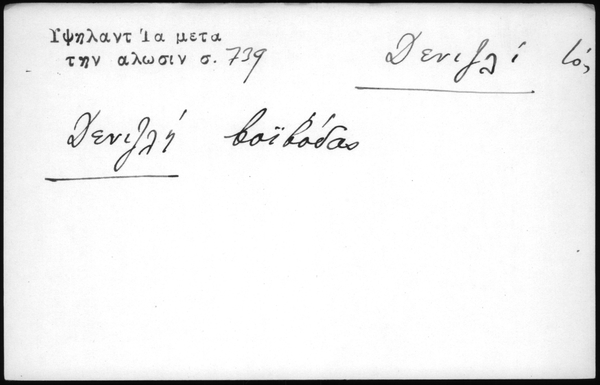 Υψηλαντ Ία μετα
την αλωσιν σ. 739
Δενιζλί τό,
Δενιζλή βοϊβόδας